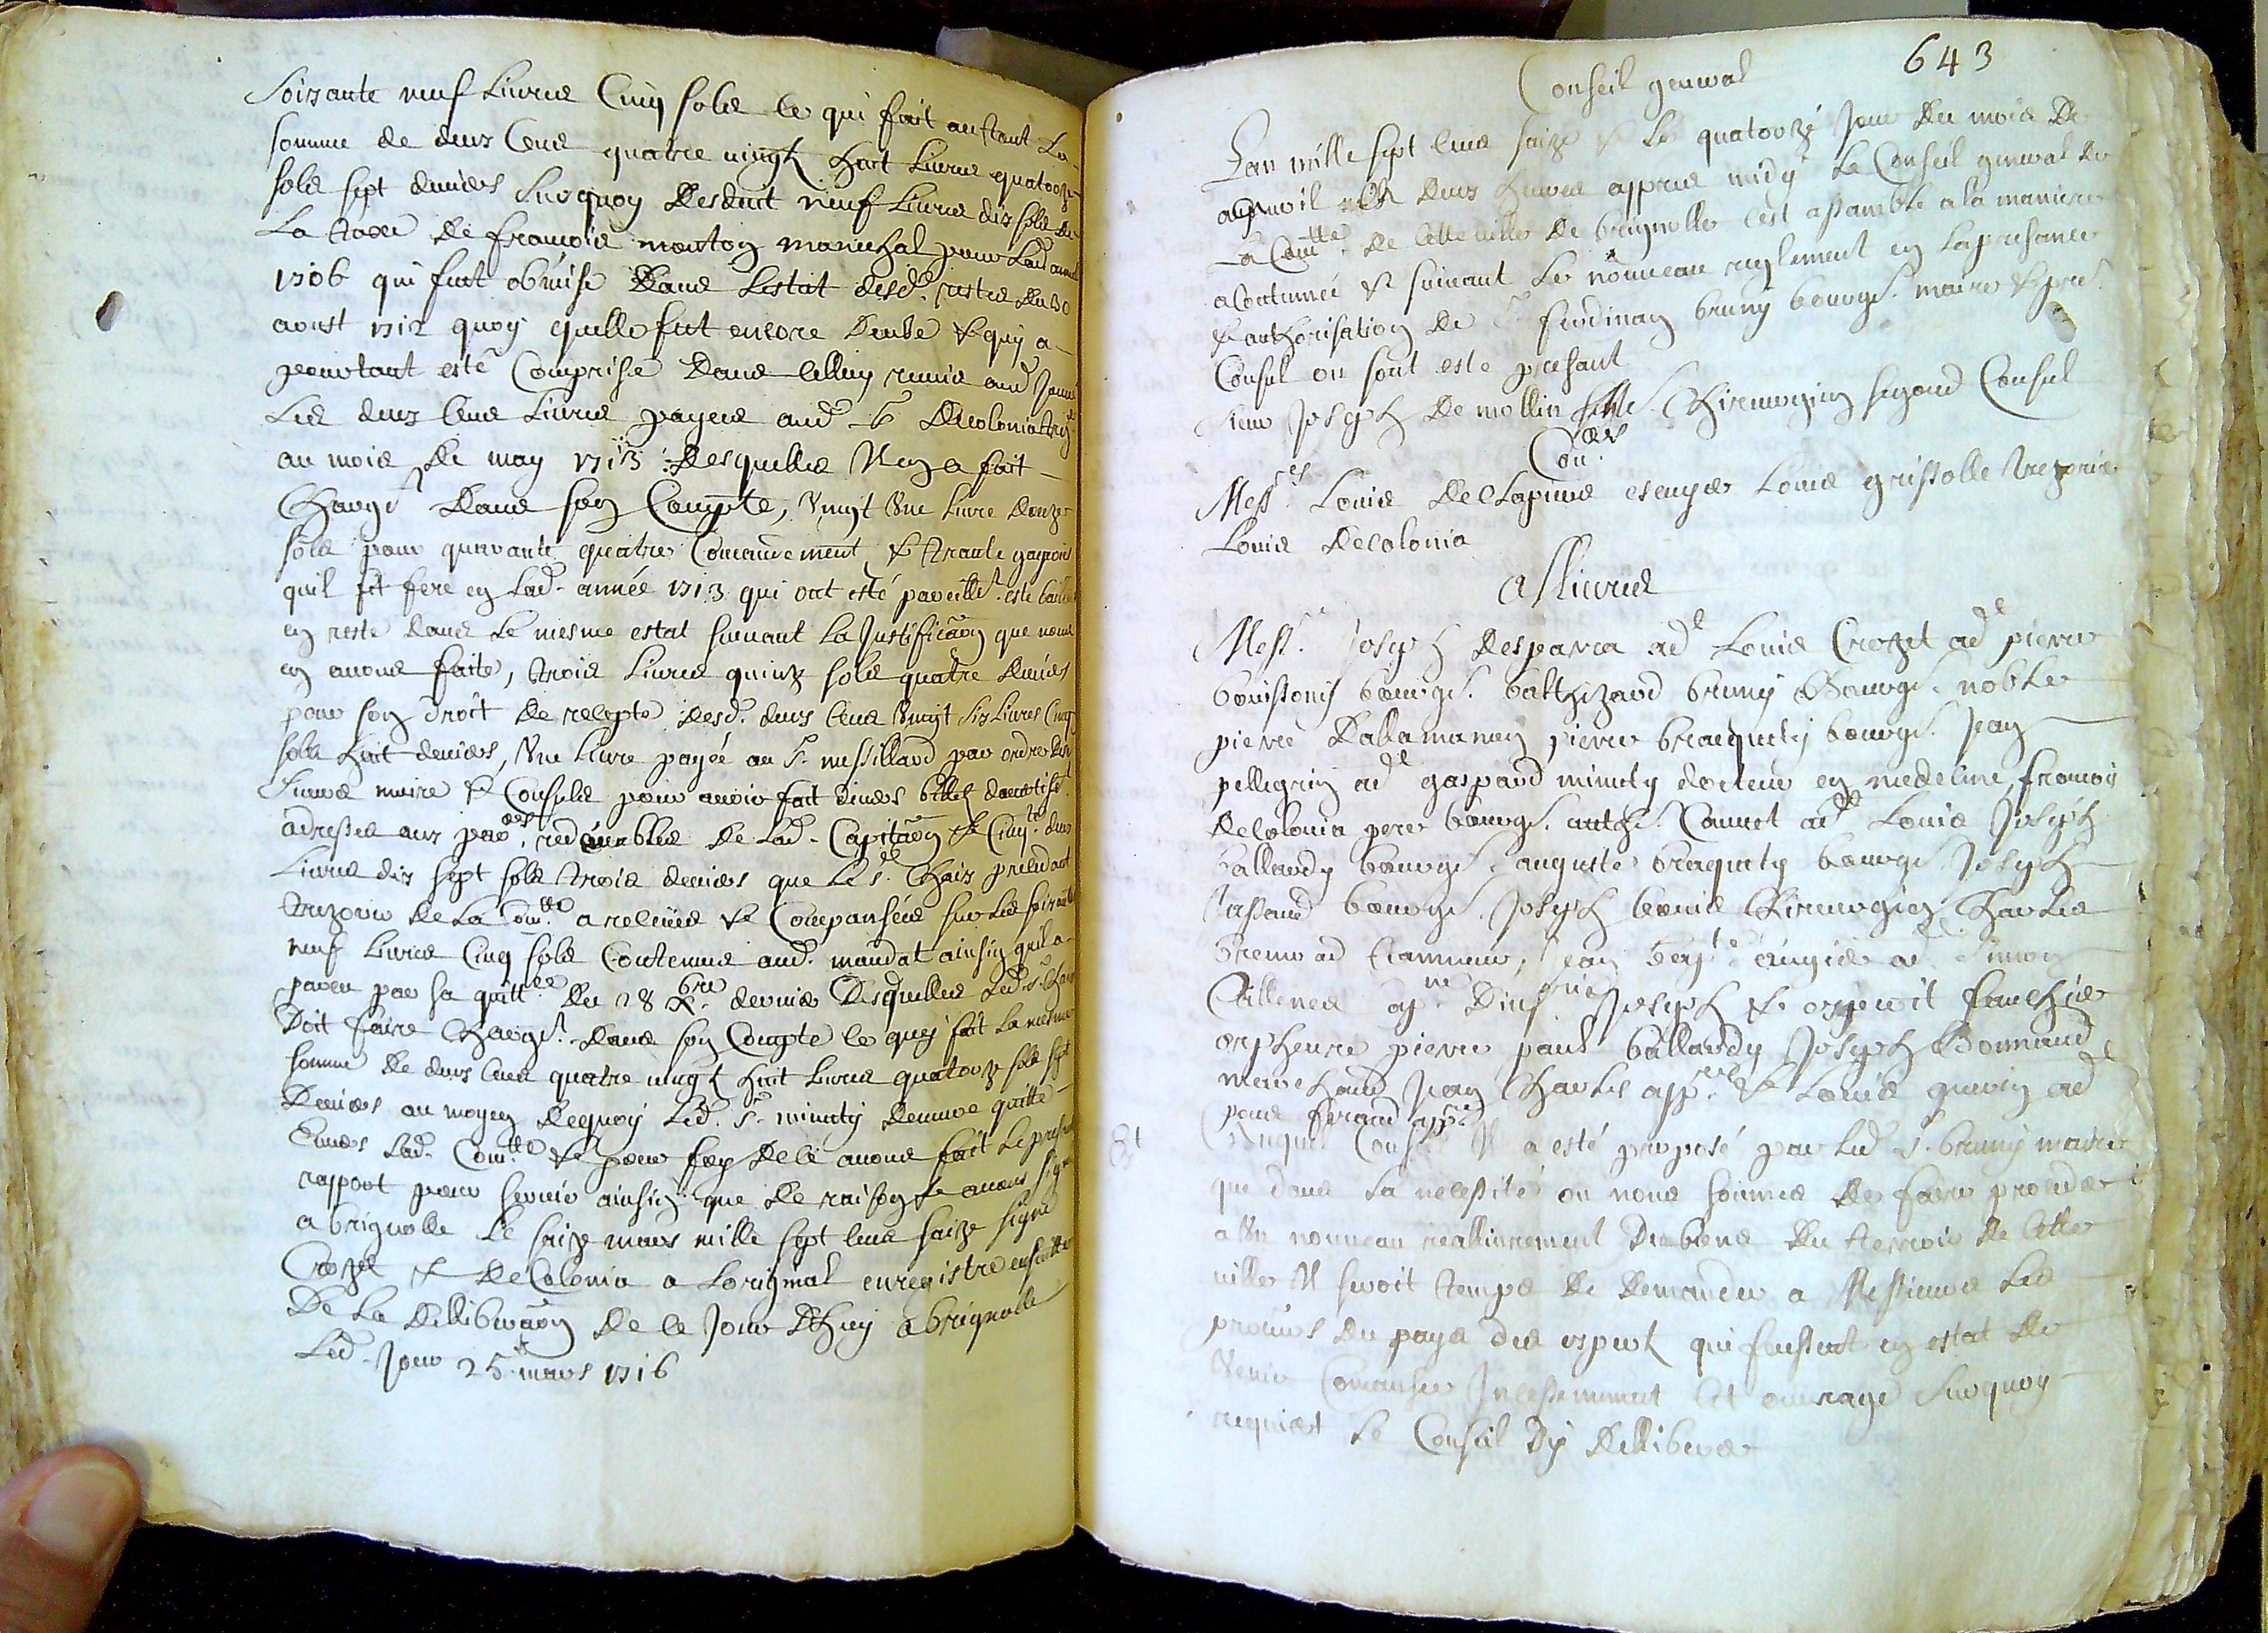 Soixante neuf Livres Cinq sols ce qui fait autant La
somme de deux Cens quatre vingts huit Livres quatorze
sols sept deniers Surquoy Desduit neuf Livres dix sols de
La taxe De francois mouton marechal pour Lad année
1706 qui fut obmise Dans Lestat desd. restes du 30
aoust 1712 quoy quelle fut encore Deube & quy a
pourtant esté Comprise Dans celluy remis aud
Les deux Cens Livres payées aud Sr Decolonia
au mois De may 1713 Desquelles Il en a fait
Charge Dans son Compte, Vingt Une livre Douze
sols pour quarante quatre Comandement & trante gageries
quil fit fere en Lad. année 1713 qui ont esté pareillt. este
en reste dans Le mesme estat suivant La Justificaõn que nous
en avons faite, trois Livres quinze sols quatre Deniers
pour son droit De recepte desd. deux Cens Vingt six Livres Cinq
sols huit deniers, Une Livre payée au Sr. missillard par ordre des
Sieurs maire & Consuls pour avoir fait divers billets
adressés aux redevables De Lad. Capitaõn & Cinqte. deux
Livres dix sept sols trois deniers que Le Sr. Chaix
trezorier De La Comtté a retenues & Compansées sur Les soixante
neuf Livres Cinq sols Contenues aud. mandat ainsin quil a
pareu par sa quittce Du 28 Xbre dernier Desquelles Led. Sr. Chaix
Doit faire Charge Dans son Compte ce quy fait La mesme
somme De deux Cens quatre vingts huit Livres quatorze sols sept
Deniers au moyen Dequoy Led. Sr. minuty Demure quitte
Envers Lad. Comtté & pour foy De ce avons fait Le presant
rapport pour servir ainsin que De raison & avons signé
a brignolle Le saize mars mille sept Cens saize signé
Crozet & DeColonia a Loriginal enregistré ensuitte
De La Delliberaõn De ce Jour Dhuy a brignolle
Led. Jour 25 mars 1716
643
Conseil general
Lan mille sept Cens saize & Le quatorze Jour Du mois De
Deux heures appres midy Le Conseil general de
La Comtté. De Cette ville De brignolle cest assamblé a la maniere
acoutumée & suivant Le nouveau reglement en La presance
& authorisation De Sr. ferdinan bruny bourgs. maire & pr.
Consul ou sont esté presant
Sieur Joseph De mollin Chirurgien segond Consul
Conrs
Messrs Louis De Clapiers escuyer Louis grissolle trezorier
Louis Decolonia
allivrés
Messrs Joseph Desparra adt Louis Crozet adt pierre
bouissony bourgs. balthezard bruny Bourgs. noble
pierre Dallamanon pierre braquety bourgs. Jean
pellegrin adt gaspard minuty docteur en medecine francois
Decolonia pere bourgs. anths. Cannet adt Louis Joseph
ballardy bourgs. auguste braquety bourgs. Joseph
Jassaud bourgs. Joseph Chirurgien Charles
bremond tanneur, Jean bapte
Joseph & fauchier
orphevre pierre paul ballardy Joseph Bonnaud
marchand Jean Charles appre & Louis guerin adt
paul feraud appre
Auquel Conseil Il a esté proposé par Led Sr. bruny maire
que dans La necessité ou nous sommes De faire proceder
a Un nouveau reallivrement Des biens Du terroir De Cette
ville Il seroit temps De Demander a Messieurs Les
procurs Du pays des esperts qui feussent en estat De
Venir Comanser Incessemment Cet ouvrage Surquoy
requiert Le Conseil Dy Delliberer